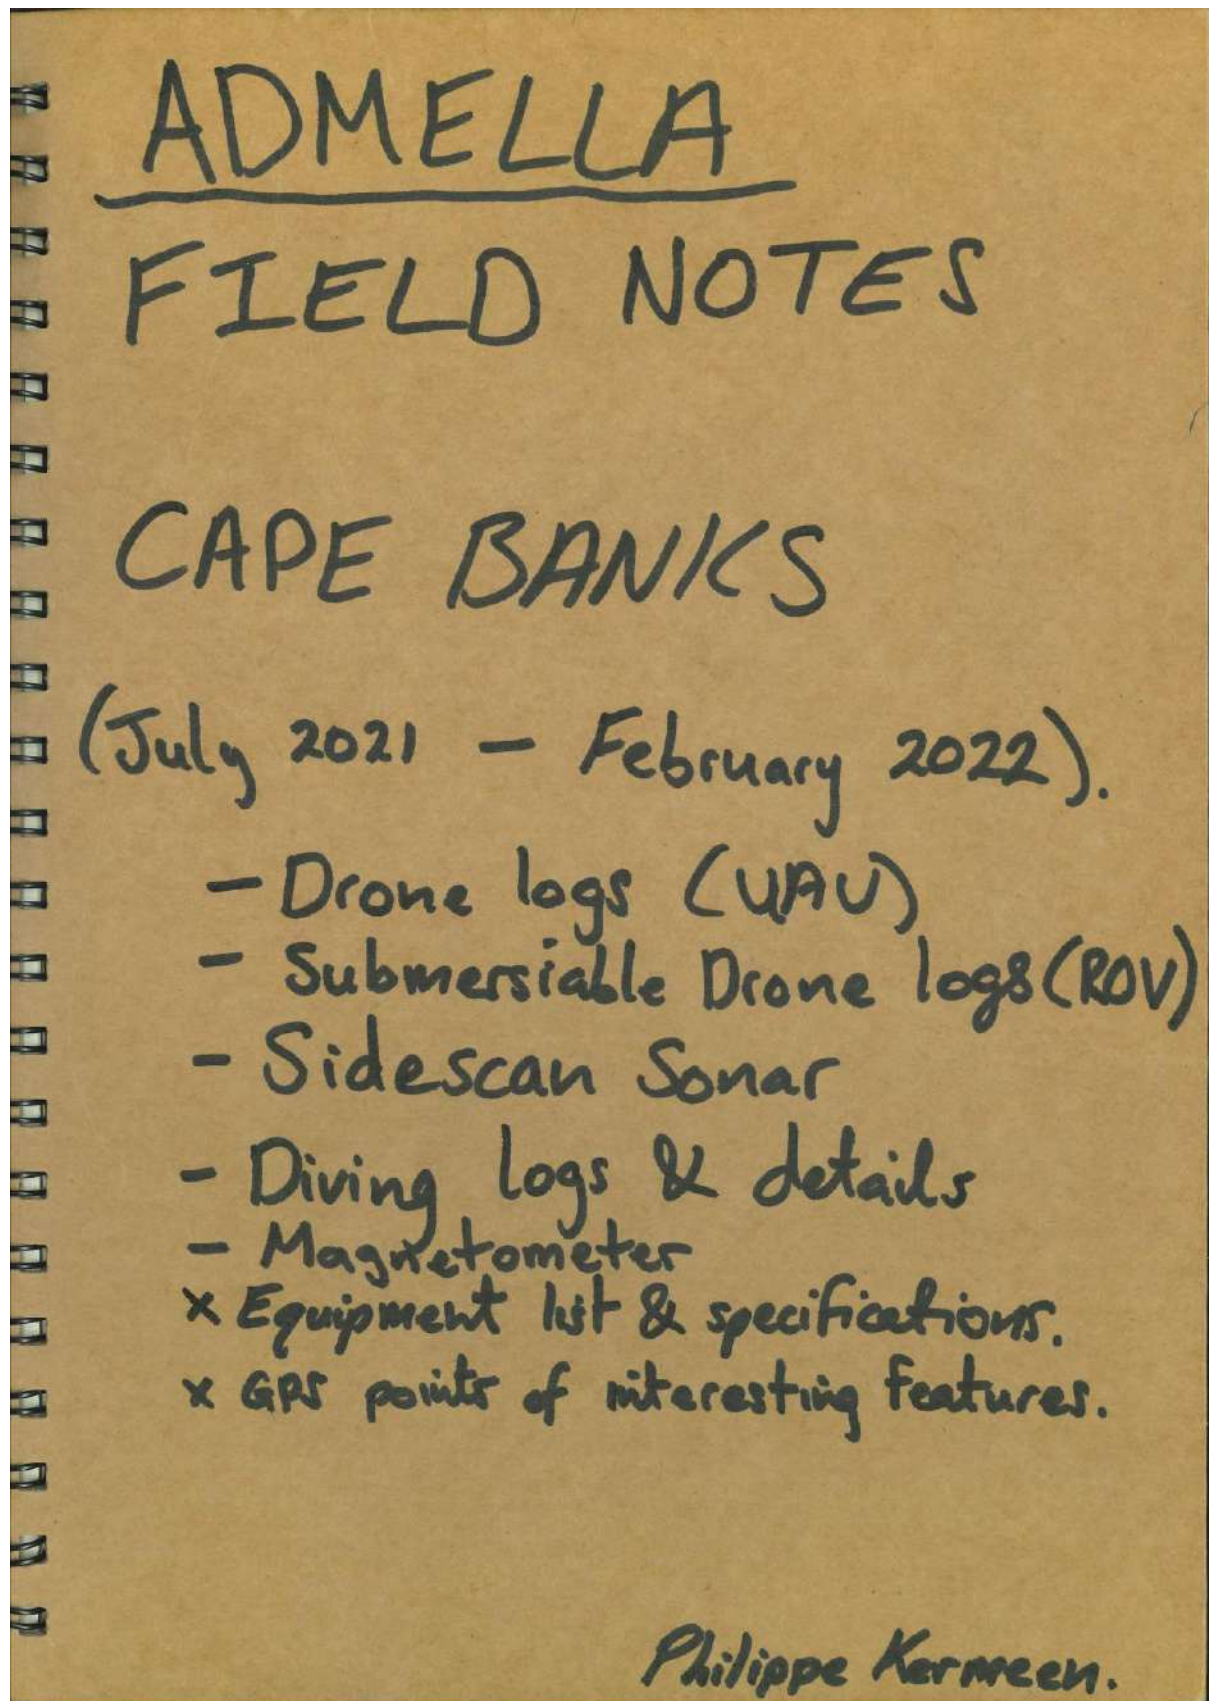 ADMELLA
FIELD NOTES
CAPE BANKS
(July 2021 - February 2022).
- Drone logs (UAV)
- Submersiable Drone logs (ROV)
- Sidescan Sonar
- Diving logs & details
- Magnetometer
x Equipment list & specifications.
x GPS points of interesting features.
Philippe Kermeen.